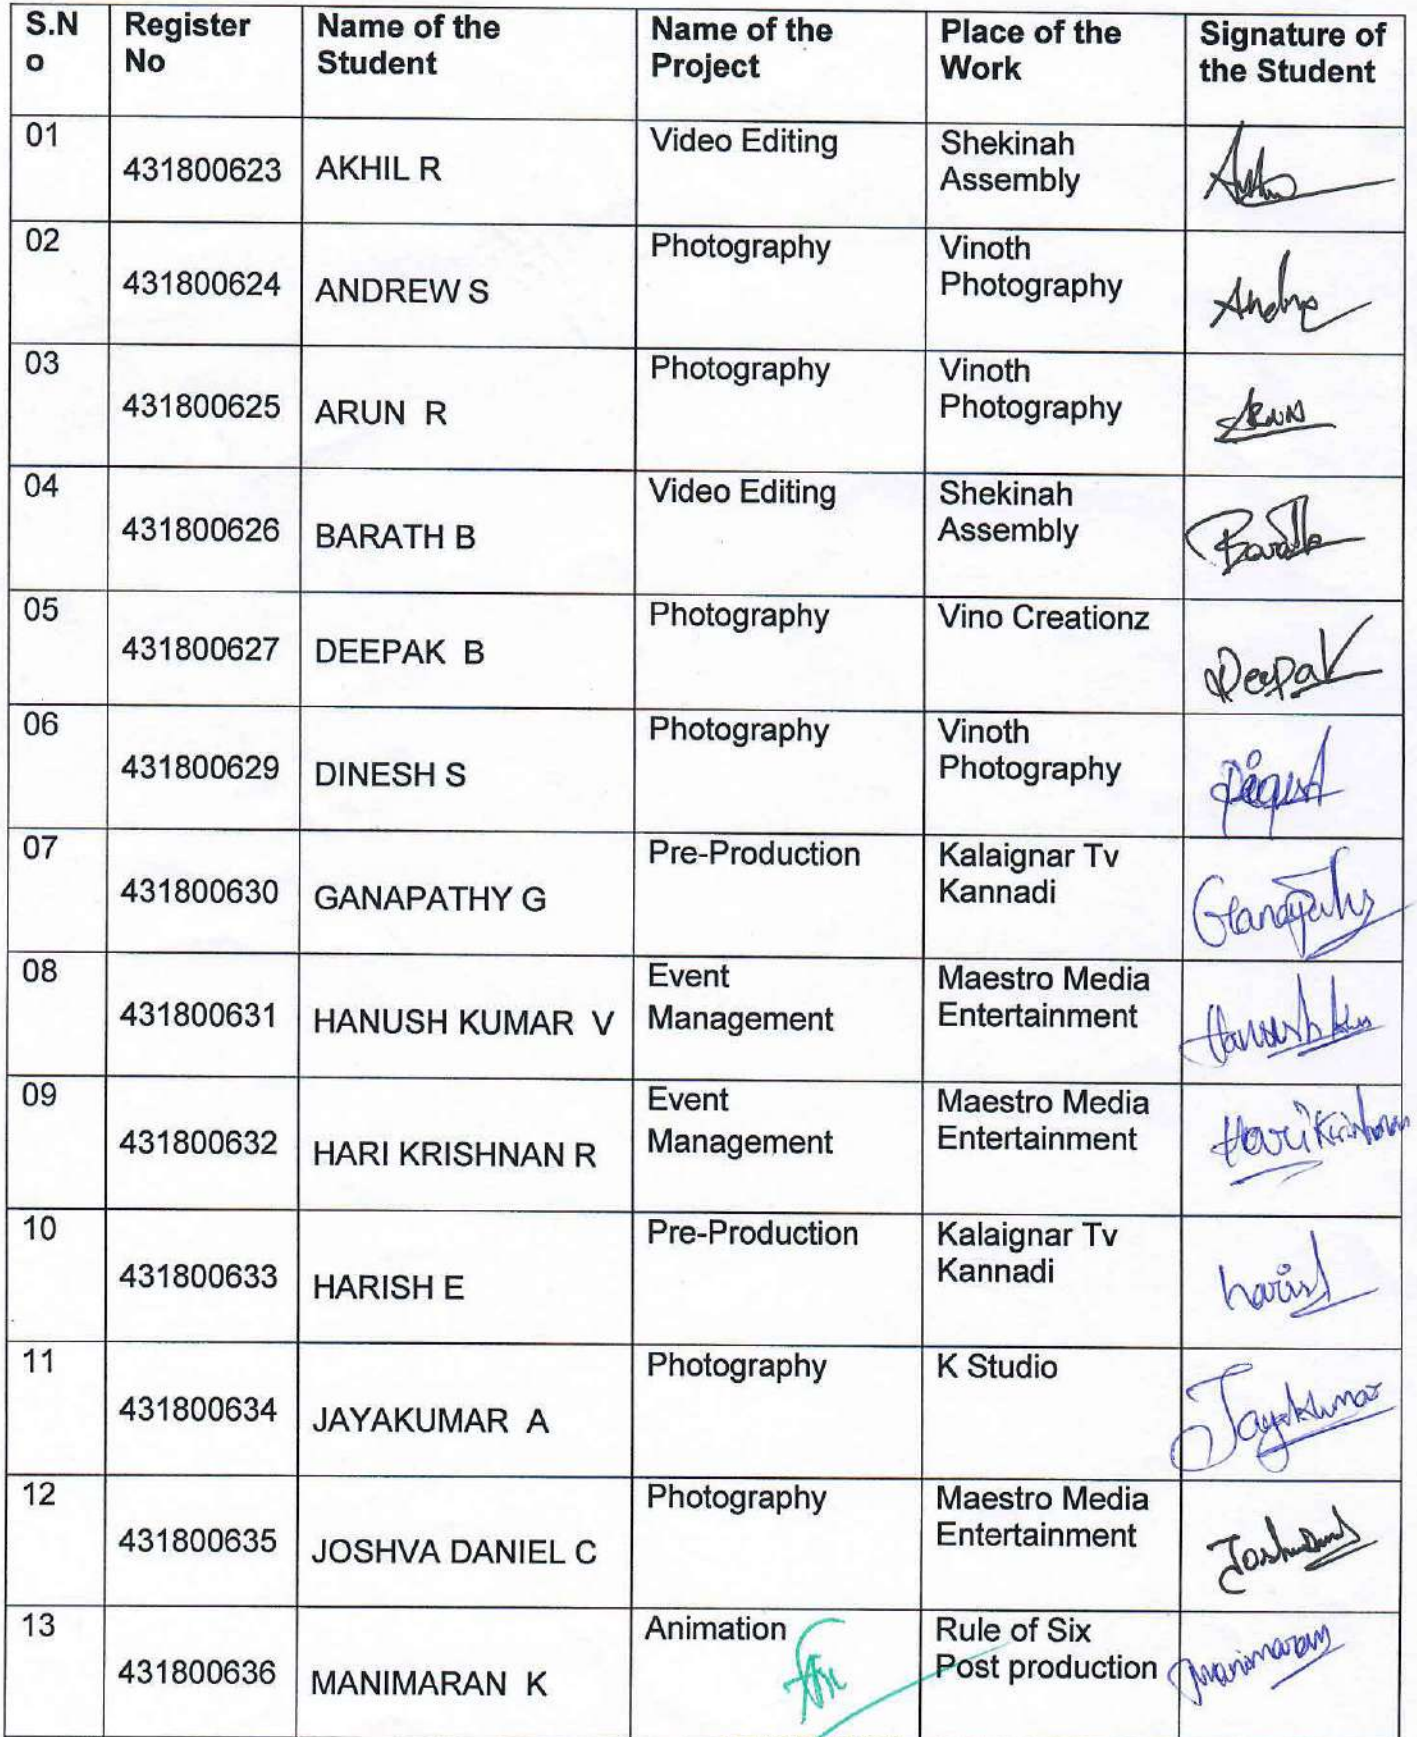 S.N Register Name of the Name of the Place of the Signature of
o No Student Project Work the Student
01 431800623 AKHIL R Video Editing Shekinah
Assembly
02 431800624 ANDREW S Photography Vinoth
Photography
Andrw
03 431800625 ARUN R Photography Vinoth
Photography
ARUN
04 431800626 BARATH B Video Editing Shekinah
Assembly
Barath
05 431800627 DEEPAK B Photography Vino Creationz
Deepak
06 431800629 DINESH S Photography Vinoth
Photography
07 431800630 GANAPATHY G Pre-Production Kalaignar Tv
Kannadi
Ganapathy
08 431800631 HANUSH KUMAR V Event Maestro Media
Management Entertainment
09 431800632 HARI KRISHNAN R Event Maestro Media
Management Entertainment
Hari Krishnan
10 431800633 HARISH E Pre-Production Kalaignar Tv
Kannadi
harish
11 431800634 JAYAKUMAR A Photography K Studio
Jayakumar
12 431800635 JOSHVA DANIEL C Photography Maestro Media
Entertainment
13 431800636 MANIMARAN K Animation Rule of Six
Post production
Manimaran